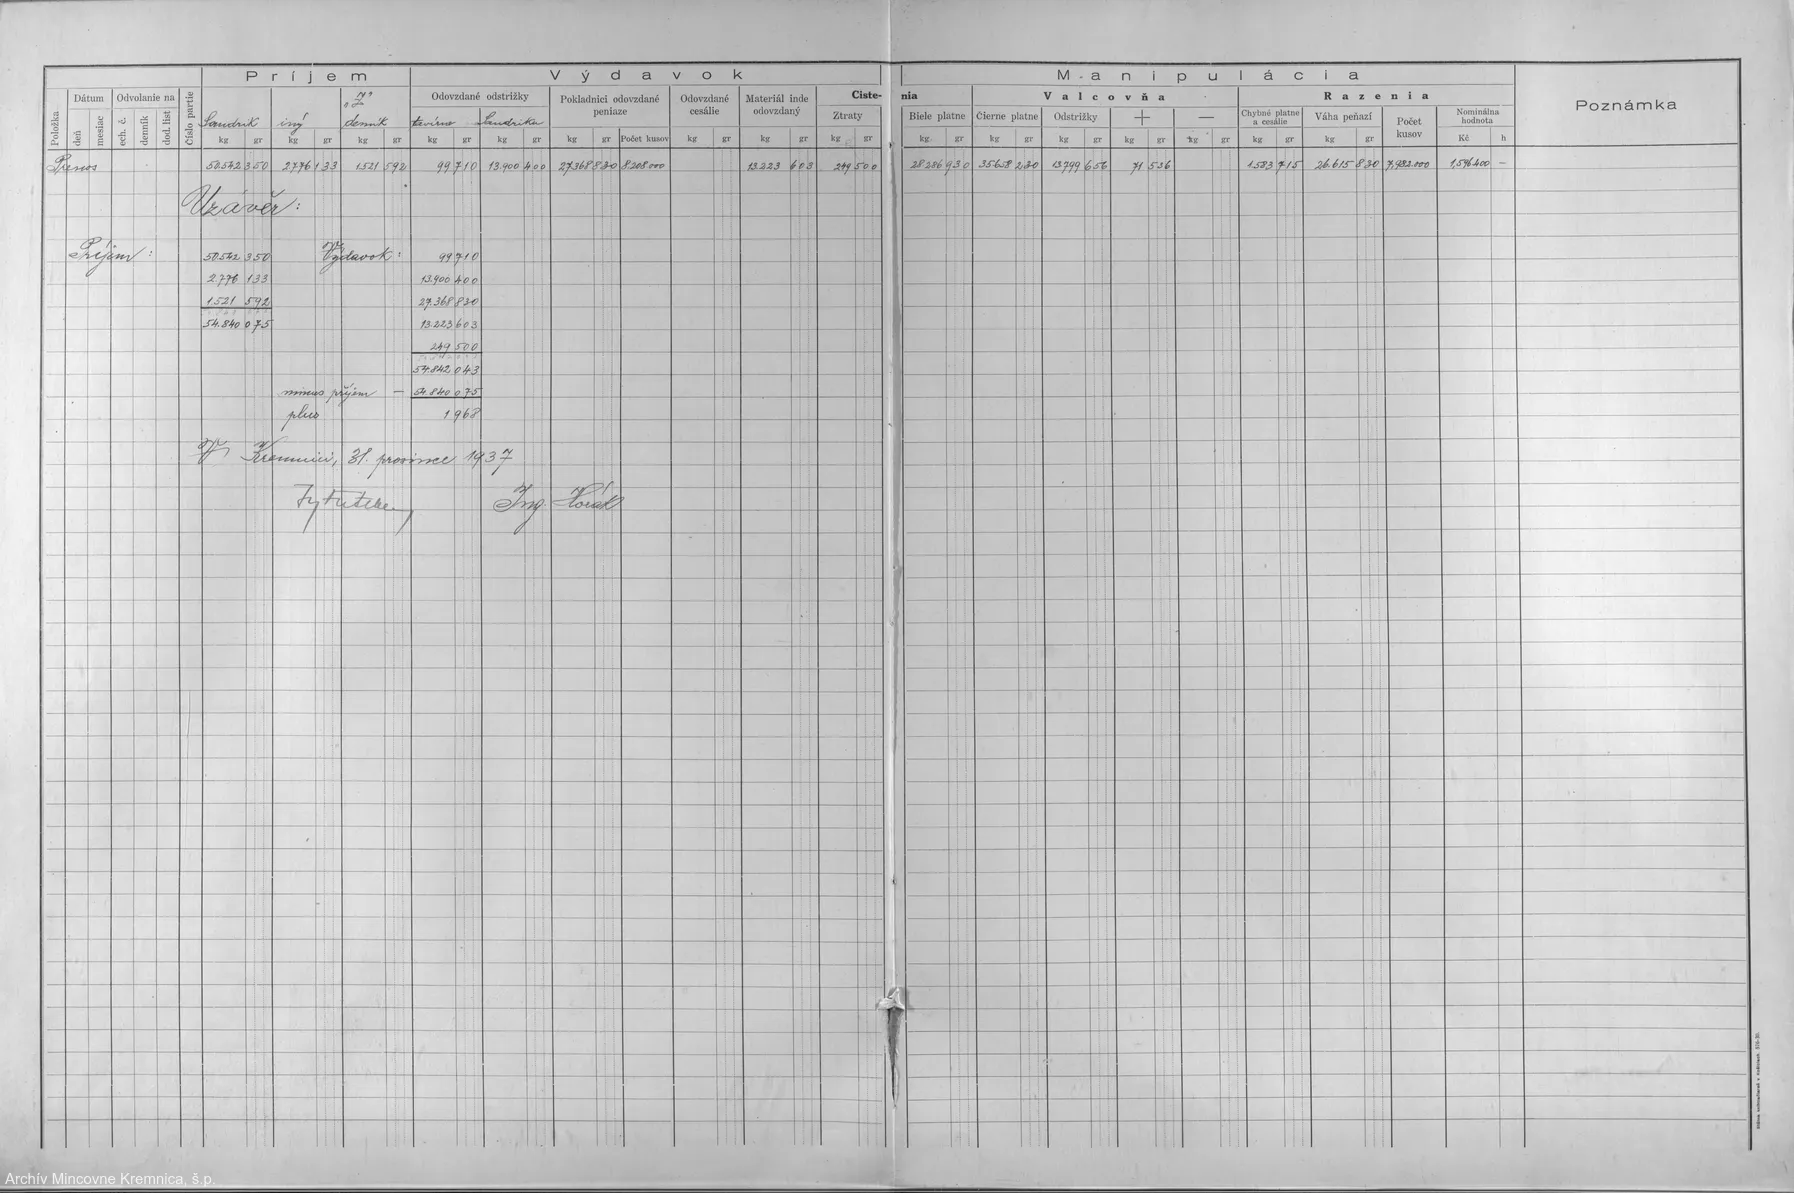 Príjem Výdavok Manipulácia
Položka Dátum Odvolanie na Číslo partie Odovzdané odstrižky Pokladnici odovzdané peniaze Odovzdané cesálie Materiál inde odovzdaný Čistenia Valcovňa Razenia Poznámka
deň mesiac ech. č. denník dod. list Sandrik iný denník Sandrika Ztraty Biele platne Čierne platne Odstrižky + — Chybné platne a cesálie Váha peňazí Počet kusov Nominálna hodnota
kg gr kg gr kg gr kg gr kg gr kg gr Počet kusov kg gr kg gr kg gr kg gr kg gr kg gr kg gr kg gr kg gr kg gr Kč h
Přenos 50.542 350 2776 133 1.521 592 99 710 13.900 400 27.368 830 8.208.000 13.223 603 249 500 28.286 930 35658 230 13.799 656 71 536 1.583 715 26.615 830 7,982.000 1,596.400 —
Uzávěr:
Príjem: 50.542 350 Výdavok: 99 710
2.776 133 13.900 400
1.521 592 27.368 830
54.840 075 13.223 603
249 500
54.842 043
minus příjem — 54.840 075
plus 1 968
V Kremnici, 31. prosince 1937
Ing. Horák
Archív Mincovne Kremnica, š.p.